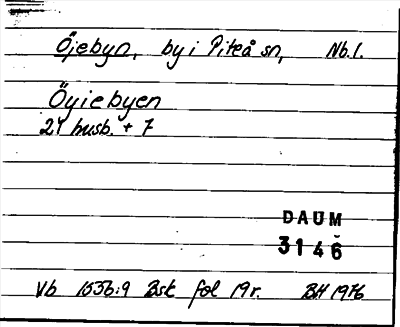 Öjebyn, by i Piteå sn, Nb.l.
Öyiebyen
24 husb. + 7
DAUM
3146
Vb 1556:9 Bsk fol 19r. BH 1976